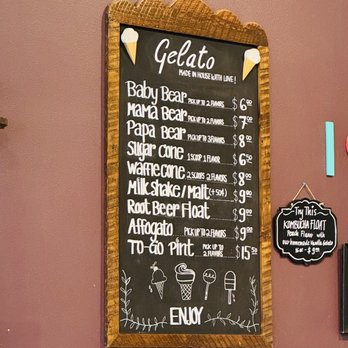 Gelato
MADE IN HOUSE WITH LOVE!
Baby Bear PICK UP TO 2 FLAVORS $6.00
Mama Bear PICK UP TO 2 FLAVORS $7.00
Papa Bear PICK UP TO 3 FLAVORS $8.00
Sugar Cone 1 SCOOP 1 FLAVOR $6.50
Waffle Cone 2 SCOOPS 2 FLAVORS $8.00
Milkshake/Malt (+50¢) $9.00
Root Beer Float $9.00
Affogato PICK UP TO 2 FLAVORS $9.00
TO-GO Pint PICK UP TO 2 FLAVORS $15.50
ENJOY
Try This
KOMBUCHA FLOAT
Peach Flavor with
our homemade Vanilla Gelato
16oz - $9.00